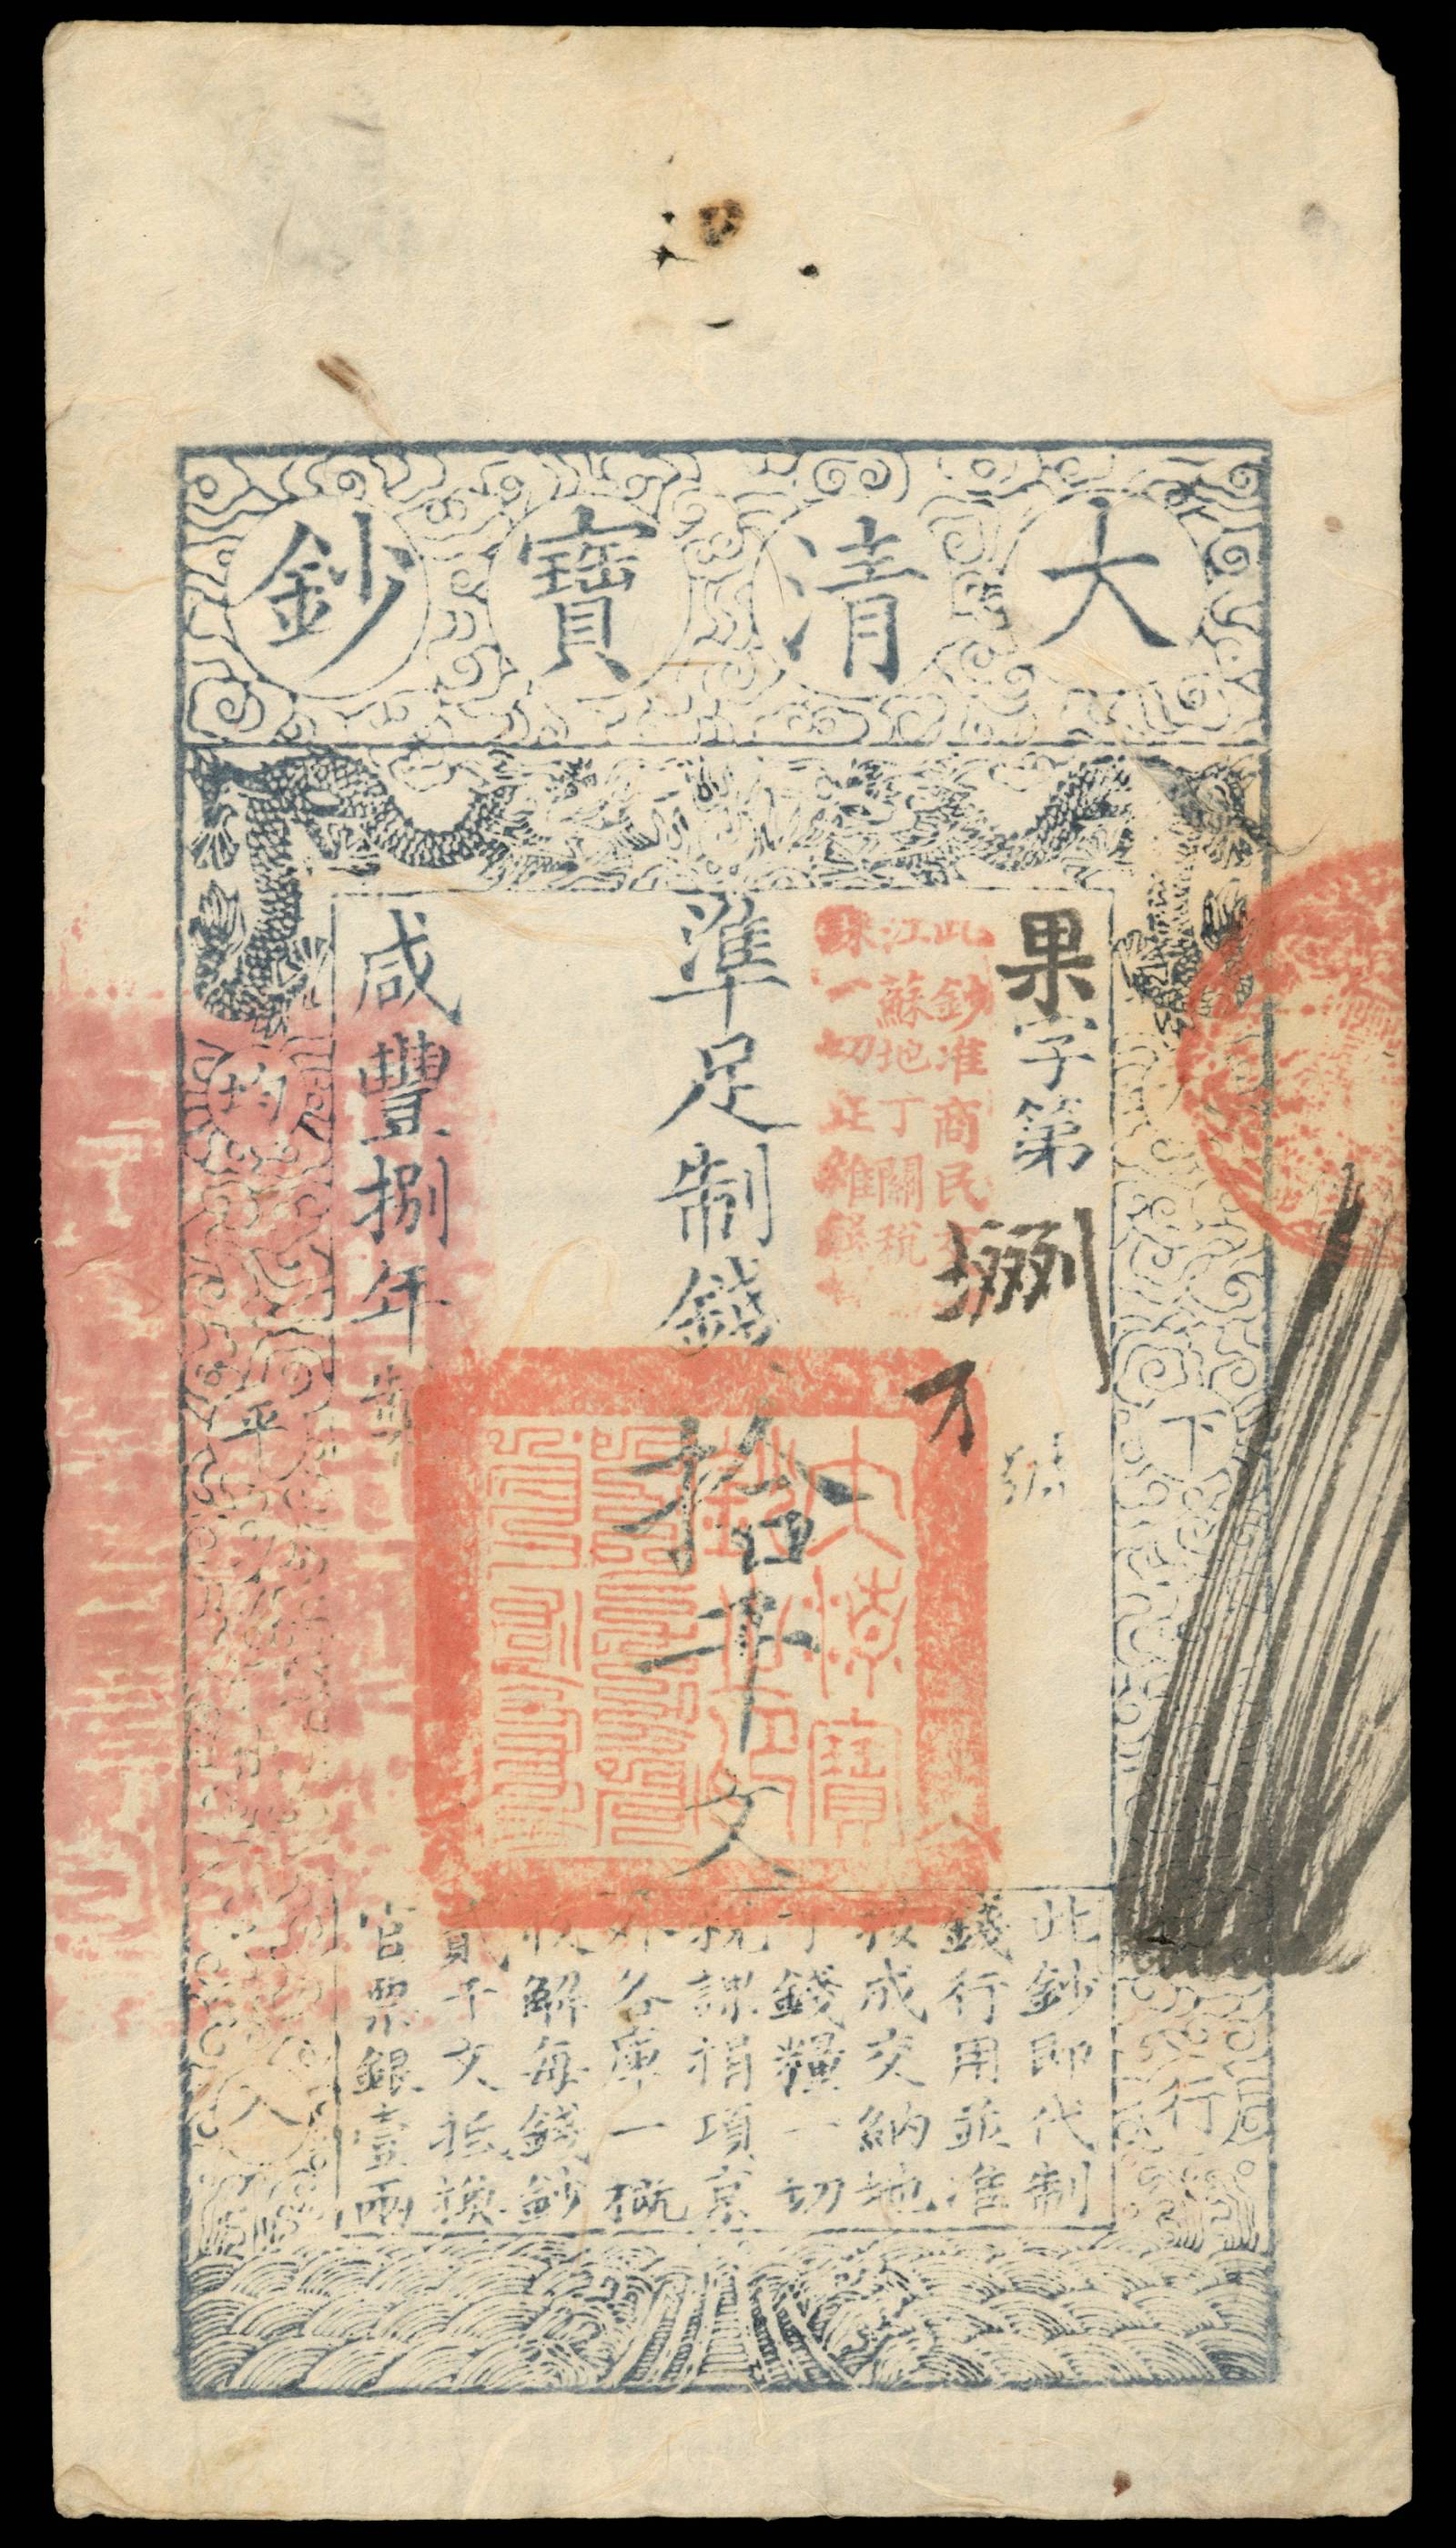 大清寶鈔
果字第
號
此鈔准商民
江蘇地丁關稅
一切正雜
準足制錢拾千文
咸豐捌年 製
下
行
均
平
出
入
此鈔即代制
錢行用並准
按成交納地
丁錢糧一切
稅課捐項京
外各庫一概
收解每錢鈔
貳千文抵換
官票銀壹兩
大清寶